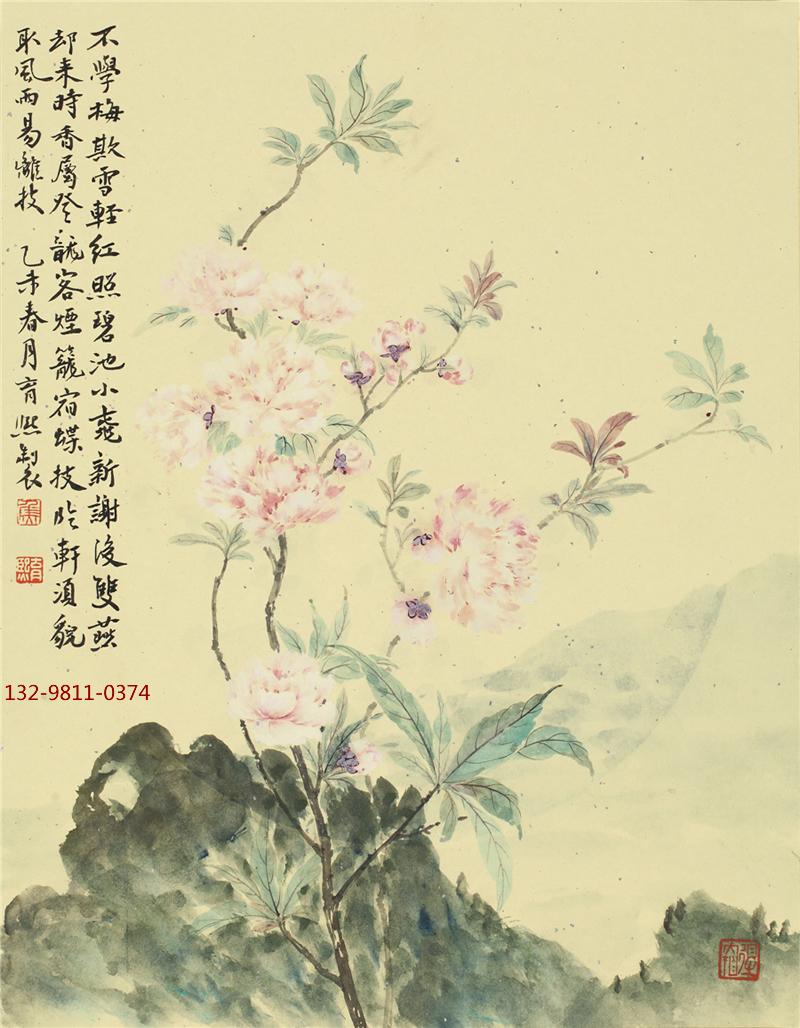 不學梅欺雪輕紅照碧池小桃新謝後雙燕
却來時香屬登龍客煙籠宿蝶枝臨軒須貌
取風雨易離披 乙未春月育熙製
132-9811-0374